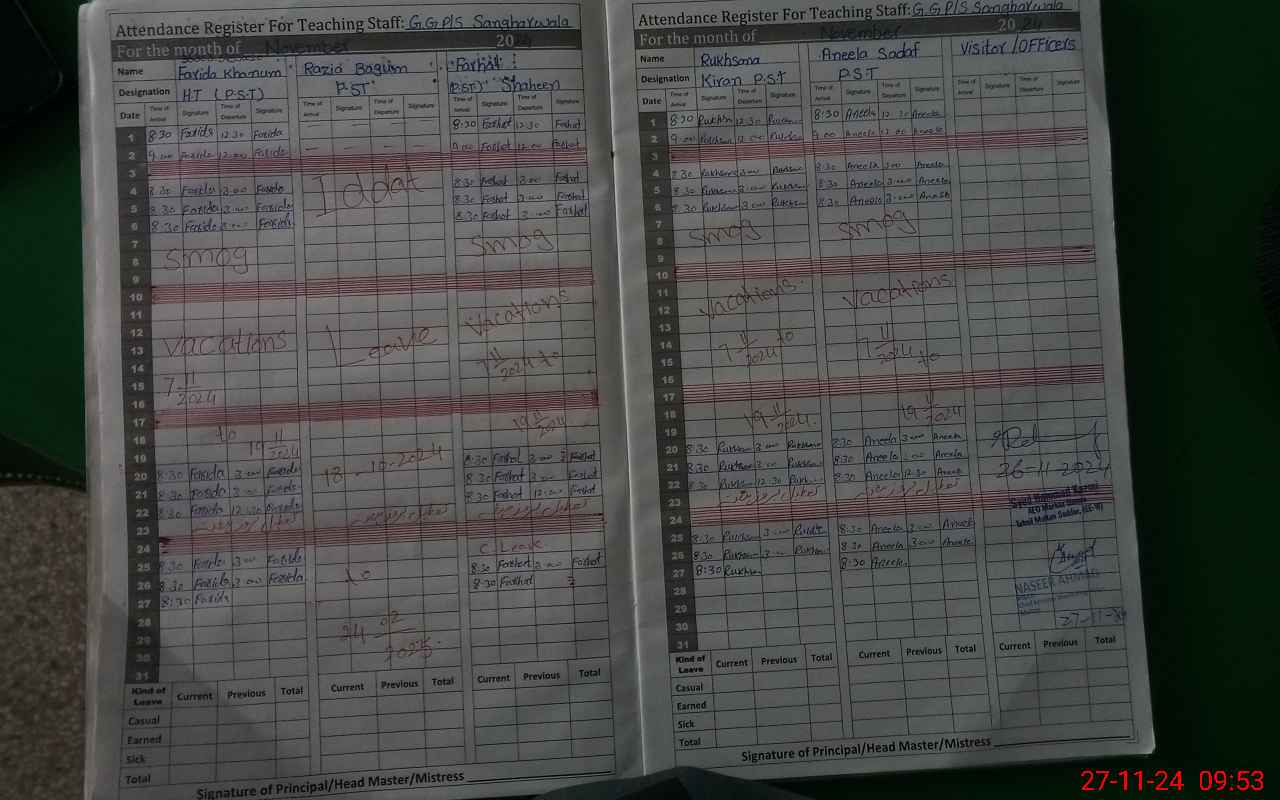 Attendance Register For Teaching Staff: G.G.P/S Sangharwala
For the month of November 2024
Name Farida Khanum Razia Bagum Farhat
Designation H.T (P.S.T) P.S.T (P.S.T) Shaheen
Date Time of Arrival Signature Time of Departure Signature Time of Arrival Signature Time of Departure Signature Time of Arrival Signature Time of Departure Signature
1 8:30 Farida 12:30 Farida 8:30 Farhat 12:30 Farhat
2 9:00 Farida 12:00 Farida 9:00 Farhat 12:00 Farhat
3
4 8:30 Farida 3:00 Farida Iddat 8:30 Farhat 3:00 Farhat
5 8:30 Farida 3:00 Farida 8:30 Farhat 3:00 Farhat
6 8:30 Farida 3:00 Farida 8:30 Farhat 3:00 Farhat
7
8 Smog Smog
9
10
11
12 Vacations
13 Vacations Leave
14 7 11/2024 to
15 7 11/2024
16
17
18 to 19 11/2024
19 19 11/2024 8:30 Farhat 3:00 Farhat
20 8:30 Farida 3:00 Farida 18-10-2024 8:30 Farhat 3:00 Farhat
21 8:30 Farida 3:00 Farida 8:30 Farhat 12:00 Farhat
22 8:30 Farida 12:30 Farida
23
24 C.Leave
25 8:30 Farida 3:00 Farida 8:30 Farhat 3:00 Farhat
26 8:30 Farida 3:00 Farida to 8:30 Farhat
27 8:30 Farida
28
29 24 02/2025
30
31
Kind of Leave Current Previous Total Current Previous Total Current Previous Total
Casual
Earned
Sick
Total
Signature of Principal/Head Master/Mistress
Attendance Register For Teaching Staff: G.G.P/S Sangharwala
For the month of November 2024
Name Rukhsana Aneela Sadaf Visitor/Officers
Designation Kiran P.S.T P.S.T
Date Time of Arrival Signature Time of Departure Signature Time of Arrival Signature Time of Departure Signature Time of Arrival Signature Time of Departure Signature
1 8:30 Rukhsn 12:30 Rukhsan 8:30 Aneela 12:30 Aneela
2 9:00 Rukhsan 12:00 Rukhsan 9:00 Aneela 12:00 Aneela
3
4 8:30 Rukhsan 3:00 Rukhsan 8:30 Aneela 3:00 Aneela
5 8:30 Rukhsan 3:00 Rukhsan 8:30 Aneela 3:00 Aneela
6 8:30 Rukhsan 3:00 Rukhsan 8:30 Aneela 3:00 Aneela
7
8 Smog Smog
9
10
11
12 Vacations Vacations
13
14 7 11/2024 to 7 11/2024 to
15
16
17
18 19 11/2024 19 11/2024
19
20 8:30 Rukhsan 3:00 Rukhsan 8:30 Aneela 3:00 Aneela
21 8:30 Rukhsan 3:00 Rukhsan 8:30 Aneela 3:00 Aneela 26-11-2024
22 8:30 Rukhsan 12:30 Rukhsan 8:30 Aneela 12:30 Aneela
23
24
25 8:30 Rukhsan 3:00 Rukhsan 8:30 Aneela 3:00 Aneela
26 8:30 Rukhsan 3:00 Rukhsan 8:30 Aneela 3:00 Aneela
27 8:30 Rukhsan 8:30 Aneela
28 NASEER AHMAD
29
30 27-11-24
31
Kind of Leave Current Previous Total Current Previous Total Current Previous Total
Casual
Earned
Sick
Total
Signature of Principal/Head Master/Mistress
27-11-24 09:53